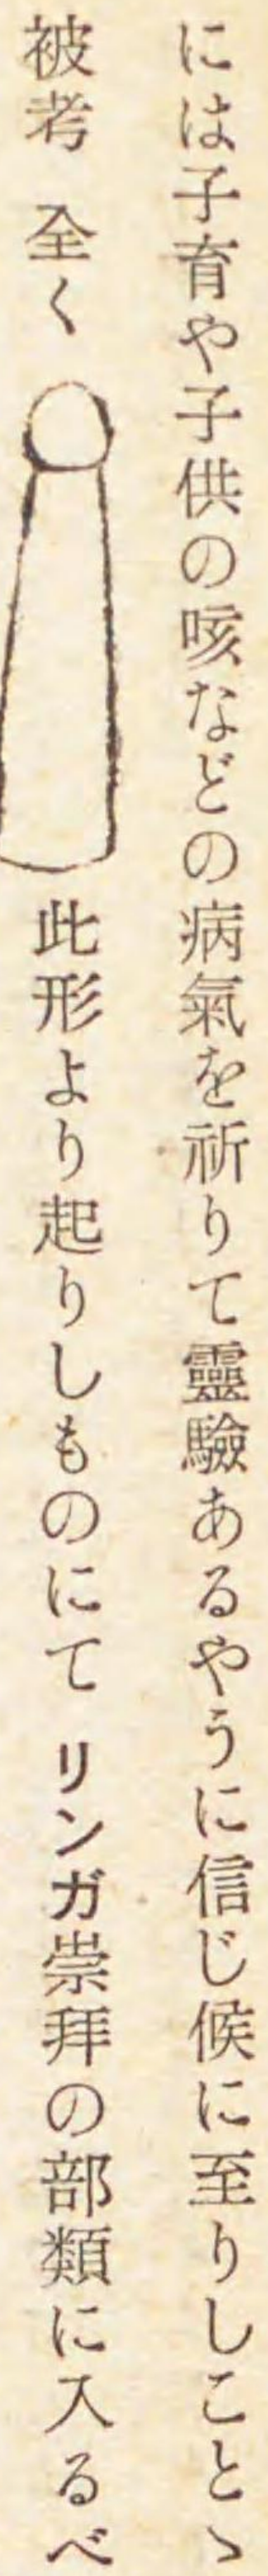 には子育や子供の咳などの病氣を祈りて靈驗あるやうに信じ候に至りしことゝ
被考　全く　此形より起りしものにて　リンガ崇拜の部類に入るべ